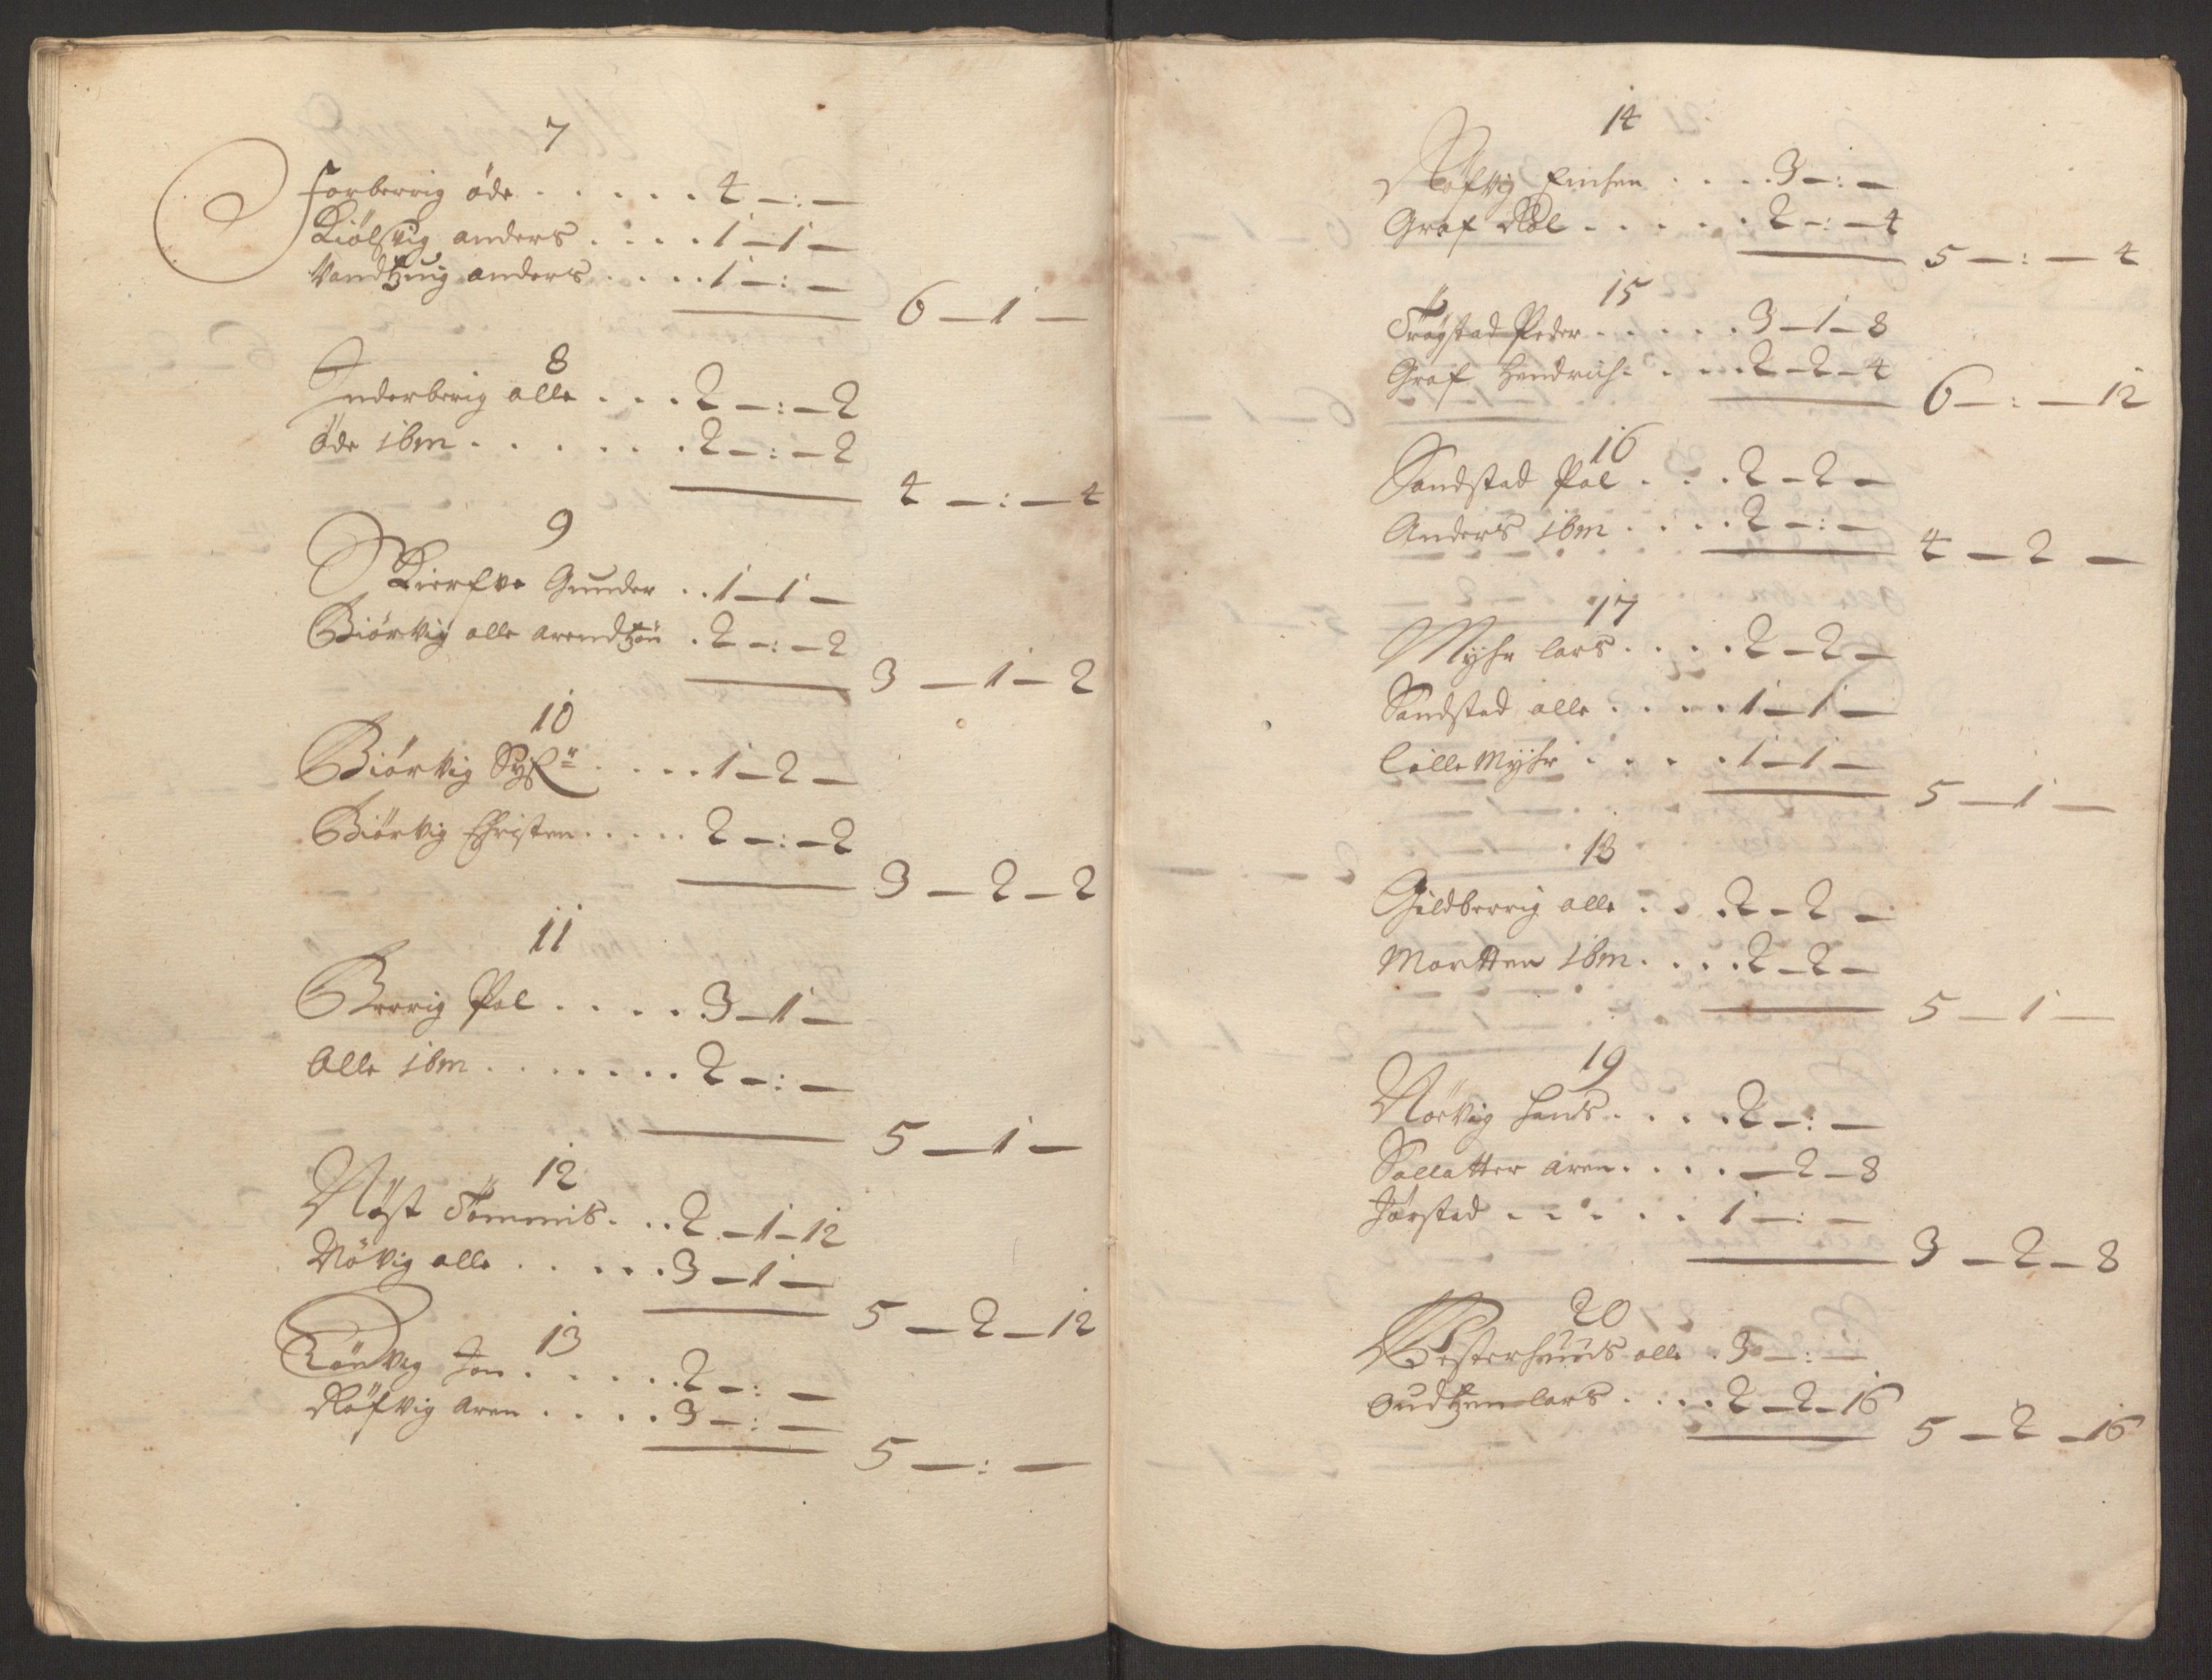 7
Forberrig öde . . . . . . 4 – : –
Kiölsvig anders . . . . 1 – 1 –
Vandtzuig anders . . . . 1 – : –
6 – 1 –
8
Inderberig olle . . . 2 – : – 2
öde ibm . . . . . . 2 – : – 2
4 – : – 4
9
Skierfue Gunder . . 1 – 1 –
Biörvig olle arendtzön . 2 – : – 2
3 – 1 – 2
10
Biörvig . . . . 1 – 2 –
Biörvig Christen . . . . . 2 – : – 2
3 – 2 – 2
11
Brerig Pol . . . . . 3 – 1 –
Olle ibm . . . . . . . 2 – : –
5 – 1 –
12
Nöst Tommis . . . 2 – 1 – 12
Növig olle . . . . . 3 – 1 –
5 – 2 – 12
13
Rönvig Jon . . . . . 2 – : –
Röfvig Aren . . . . 3 – : –
5 – : –
14
Röfvig Einsen . . . . 3 – : –
Graf Pol . . . . . . 2 – : – 4
5 – : – 4
15
Trögstad Peder . . . . . . 3 – 1 – 8
Graf Hendrich . . . . 2 – 2 – 4
6 – : – 12
16
Sandstad Pol . . . 2 – 2 –
Anders ibm . . . . 2 – : –
4 – 2 –
17
Myhr lars . . . . 2 – 2 –
Sandstad olle . . . . 1 – 1 –
Lille Myhr . . . . . 1 – 1 –
5 – 1 –
18
Gildberrig olle . . . 2 – 2 –
Mortten ibm . . . . 2 – 2 –
5 – 1 –
19
Nörvig Hans . . . . 2 – : –
Sallatter aren . . . . – 2 – 8
Jörstad . . . . . . 1 – : –
3 – 2 – 8
20
Westerhuuds olle . 3 – : –
Oudtzen lars . . . . 2 – 2 – 16
5 – 2 – 16